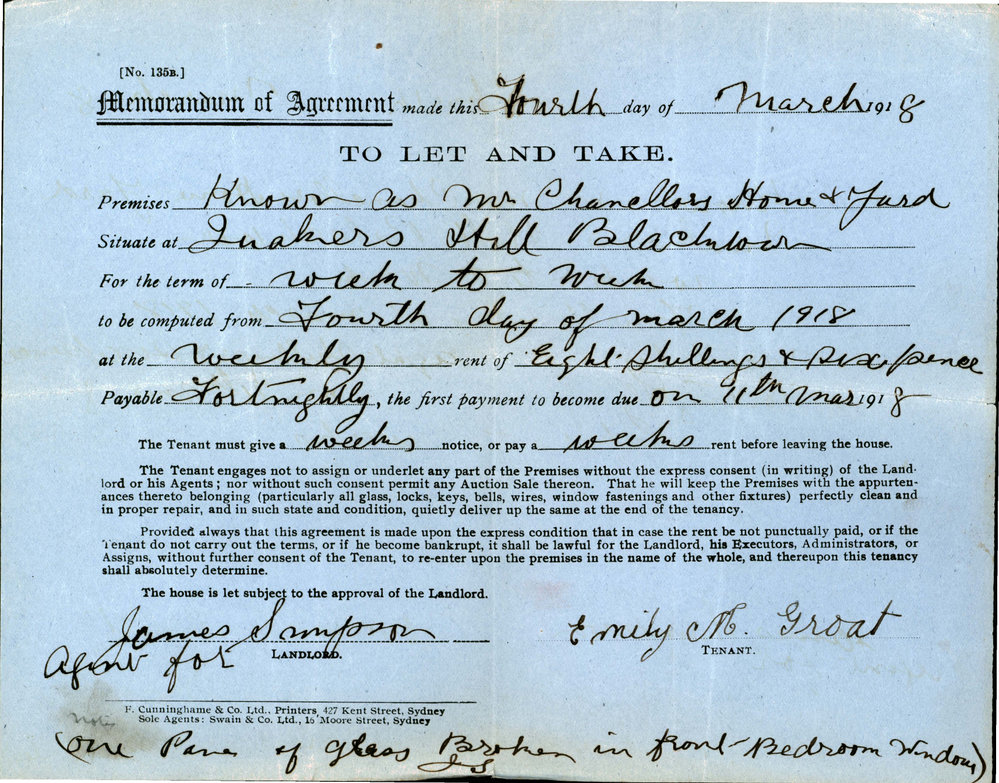 [No. 135B.]
Memorandum of Agreement made this Fourth day of March 1918
TO LET AND TAKE.
Premises Known as Mr Chanellors Home & Yard
Situate at Quakers Hill Blacktown
For the term of week to week
to be computed from Fourth day of march 1918
at the weekly rent of Eight Shillings & Six pence
Payable Fortnightly, the first payment to become due on 11th Mar 1918
The Tenant must give a weeks notice, or pay a weeks rent before leaving the house.
The Tenant engages not to assign or underlet any part of the Premises without the express consent (in writing) of the Land-
lord or his Agents; nor without such consent permit any Auction Sale thereon. That he will keep the Premises with the appurten-
ances thereto belonging (particularly all glass, locks, keys, bells, wires, window fastenings and other fixtures) perfectly clean and
in proper repair, and in such state and condition, quietly deliver up the same at the end of the tenancy.
Provided always that this agreement is made upon the express condition that in case the rent be not punctually paid, or if the
Tenant do not carry out the terms, or if he become bankrupt, it shall be lawful for the Landlord, his Executors, Administrators, or
Assigns, without further consent of the Tenant, to re-enter upon the premises in the name of the whole, and thereupon this tenancy
shall absolutely determine.
The house is let subject to the approval of the Landlord.
James Simpson Emily M. Groat
Agent for LANDLORD. TENANT.
F. Cunninghame & Co. Ltd., Printers, 427 Kent Street, Sydney
Sole Agents: Swain & Co. Ltd., 16 Moore Street, Sydney
Note
(One Pane of glass Broken in front Bedroom Window)
JS